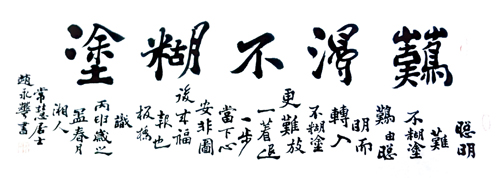 難得不糊塗
聰明
難
不糊塗
難由聰
明而
轉入
不糊塗
更難放
一着退
一步
當下心
安非圖
後來福
報也
板橋
識
丙申歲之
孟春月
湘人
常慧居士
書